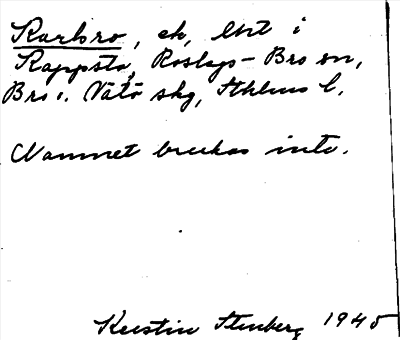 Karbro, ek, lht i
Rappsta, Roslags-Bro sn,
Bro o. Vätö skg, Sthlms l.
Namnet brukas inte.
Kerstin Stenberg 1945